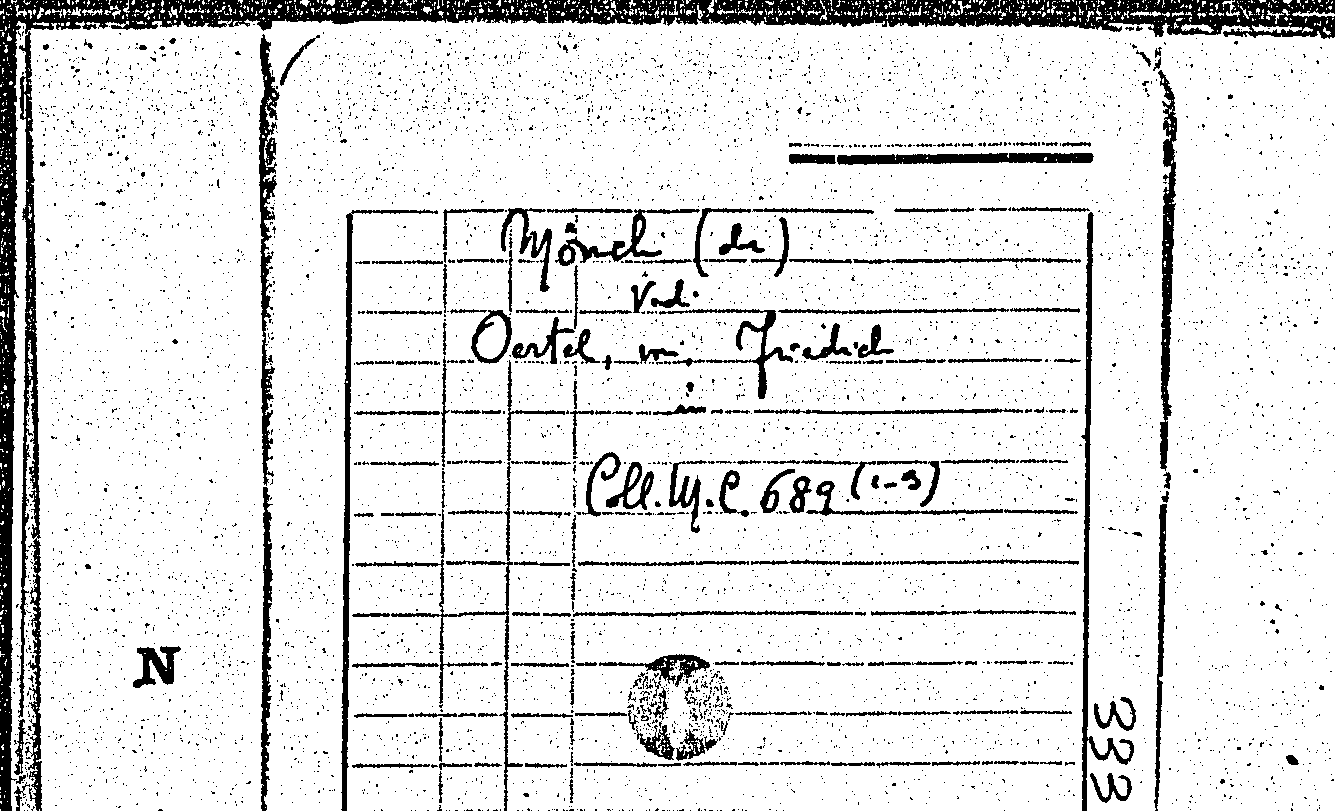 Mönch (der)
Vid.
Oertel, von, Friedrich
:
Coll. M. C. 689 (1-3)
N
333